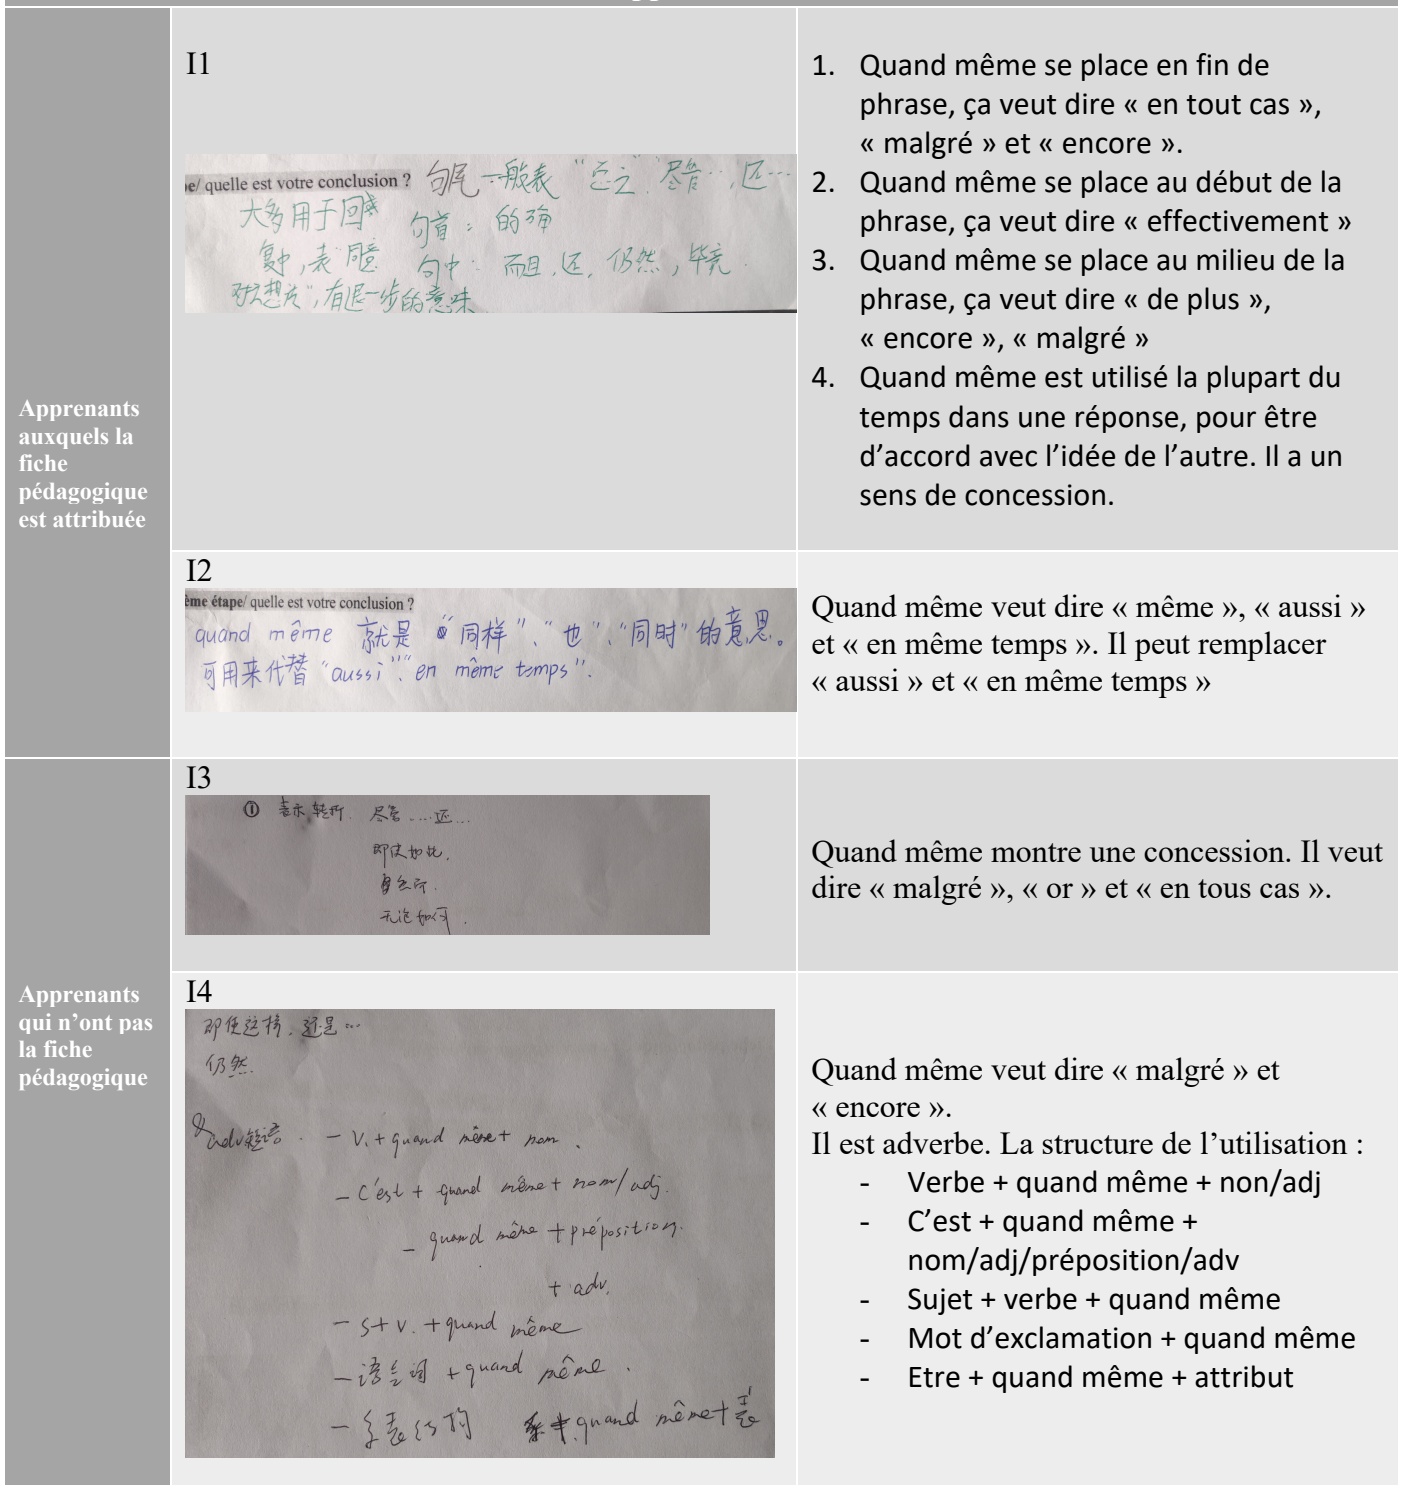 I1
e/ quelle est votre conclusion ? 句尾 一般表 "总之" 尽管…,还…
大多用于回答
句首: 的确
复中,表"同意
句中: 而且,还,仍然,毕竟.
对方想法",有退一步的意味
1. Quand même se place en fin de
phrase, ça veut dire « en tout cas »,
« malgré » et « encore ».
2. Quand même se place au début de la
phrase, ça veut dire « effectivement »
3. Quand même se place au milieu de la
phrase, ça veut dire « de plus »,
« encore », « malgré »
4. Quand même est utilisé la plupart du
temps dans une réponse, pour être
d'accord avec l'idée de l'autre. Il a un
sens de concession.
Apprenants
auxquels la
fiche
pédagogique
est attribuée
I2
ème étape/ quelle est votre conclusion ?
quand même 就是 "同样"、"也"、"同时"的意思。
可用来代替 "aussi"、"en même temps".
Quand même veut dire « même », « aussi »
et « en même temps ». Il peut remplacer
« aussi » et « en même temps »
I3
① 表示转折. 尽管……还…
即使如此.
无论如何.
Quand même montre une concession. Il veut
dire « malgré », « or » et « en tous cas ».
Apprenants
qui n'ont pas
la fiche
pédagogique
I4
即使这样,还是…
仍然.
adv短语. - V. + quand même + nom.
- C'est + quand même + nom/adj.
- quand même + préposition.
+ adv.
- S + V. + quand même
- 语气词 + quand même.
- 系表结构 quand même + 表
Quand même veut dire « malgré » et
« encore ».
Il est adverbe. La structure de l'utilisation :
- Verbe + quand même + non/adj
- C'est + quand même +
nom/adj/préposition/adv
- Sujet + verbe + quand même
- Mot d'exclamation + quand même
- Etre + quand même + attribut